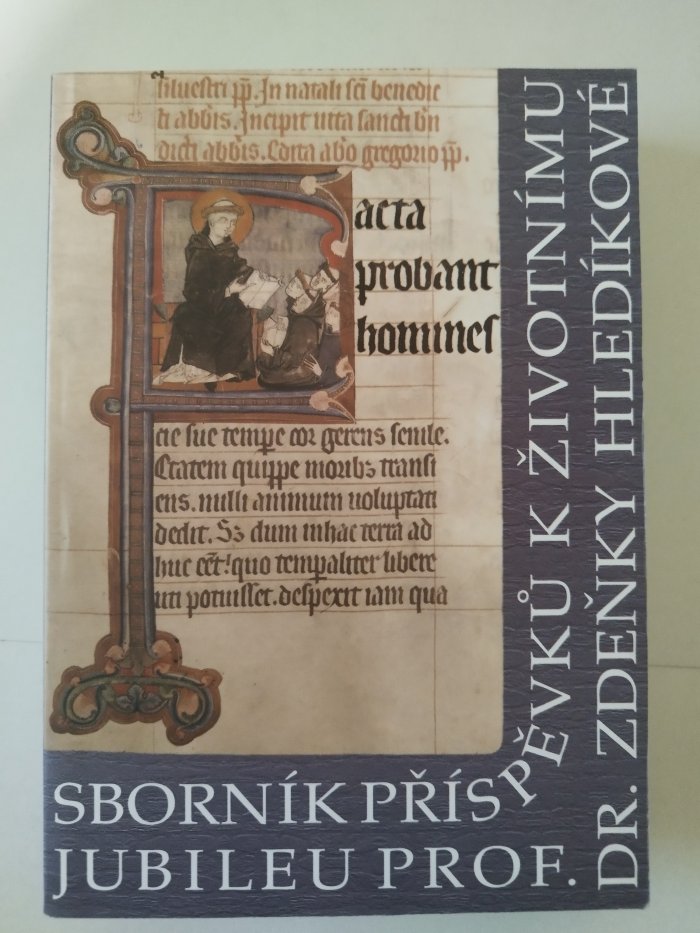 siluestri pp. In natali sci benedic
ti abbis. Incipit uita sancti bn
dicti abbis. Edita abo gregorio pp.
acta
probant
homines
cie sue tempe cor gerens senile.
Etatem quippe moribz transi
ens. nulli animum uoluptati
dedit. Sz dum inhac terra ad
huc eet! quo tempaliter libere
uti potuisset. despexit iam qua
SBORNÍK PŘÍSPĚVKŮ K ŽIVOTNÍMU
JUBILEU PROF. DR. ZDEŇKY HLEDÍKOVÉ